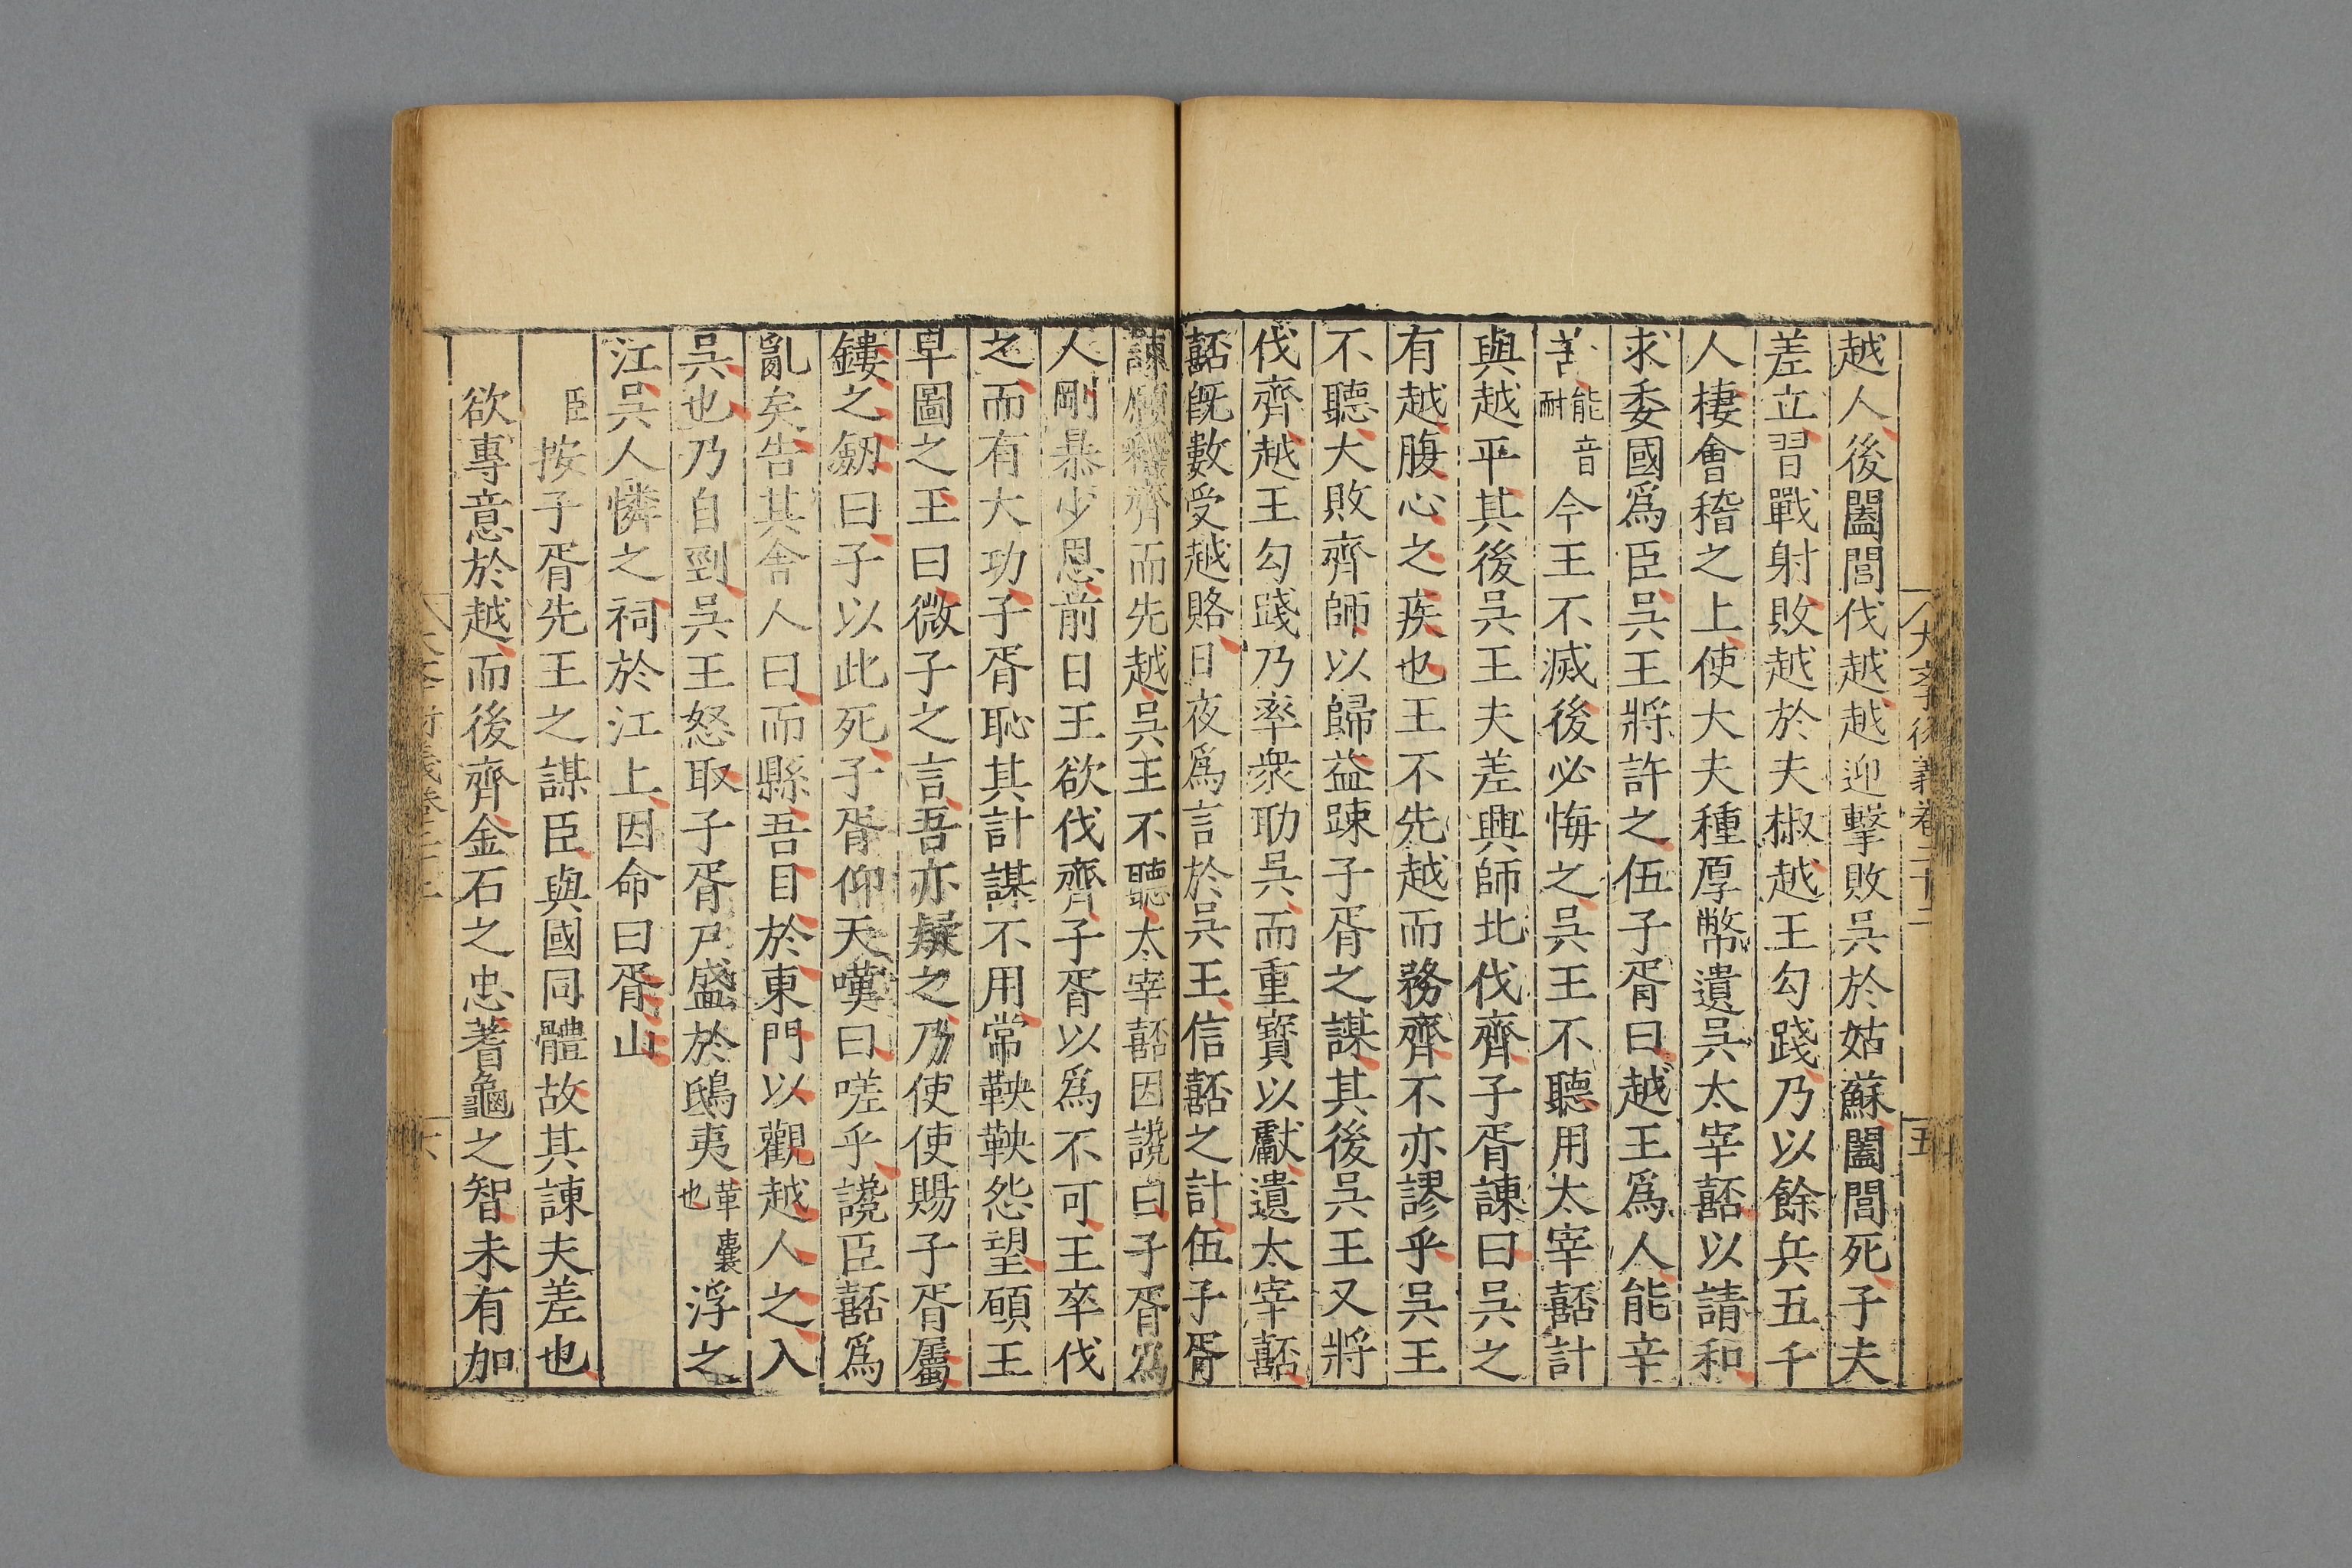 大學衍義卷二十二
五
越人後闔閭伐越越迎擊敗吳於姑蘇闔閭死子夫
差立習戰射敗越於夫椒越王勾踐乃以餘兵五千
人棲會稽之上使大夫種厚幣遺吳太宰嚭以請和
求委國爲臣吳王將許之伍子胥曰越王爲人能辛
苦能音耐今王不滅後必悔之吳王不聽用太宰嚭計
與越平其後吳王夫差興師北伐齊子胥諫曰吳之
有越腹心之疾也王不先越而務齊不亦謬乎吳王
不聽大敗齊師以歸益踈子胥之謀其後吳王又將
伐齊越王勾踐乃率衆助吳而重寶以獻遺太宰嚭
嚭旣數受越賂日夜爲言於吳王信嚭之計伍子胥
諫願釋齊而先越吳王不聽太宰嚭因讒曰子胥爲
人剛暴少恩前日王欲伐齊子胥以爲不可王卒伐
之而有大功子胥恥其計謀不用常鞅鞅怨望碩王
早圖之王曰微子之言吾亦疑之乃使使賜子胥屬
鏤之劒曰子以此死子胥仰天嘆曰嗟乎讒臣嚭爲
亂矣告其舍人曰而縣吾目於東門以觀越人之入
吳也乃自剄吳王怒取子胥尸盛於鴟夷革囊也浮之
江吳人憐之祠於江上因命曰胥山
臣按子胥先王之謀臣與國同體故其諫夫差也
欲專意於越而後齊金石之忠蓍龜之智未有加
六